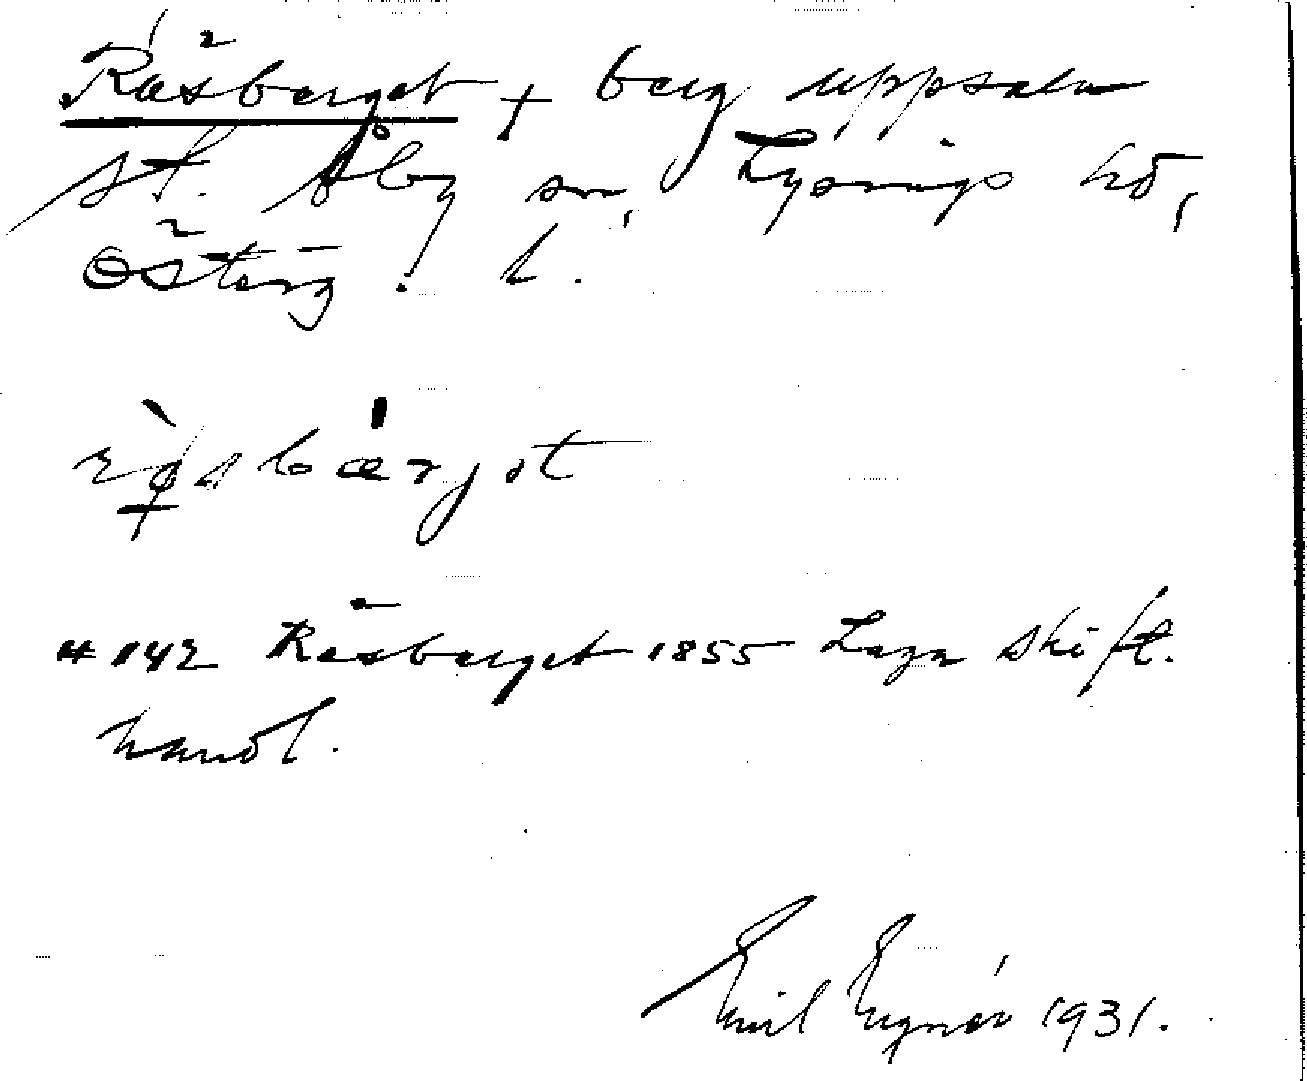 Rösberget + berg Uppsala
St. Åby sn, Lysings hd,
Österg. l.
# 142 Rösberget 1855 Laga skift.
handl.
Emil Engnér 1931.